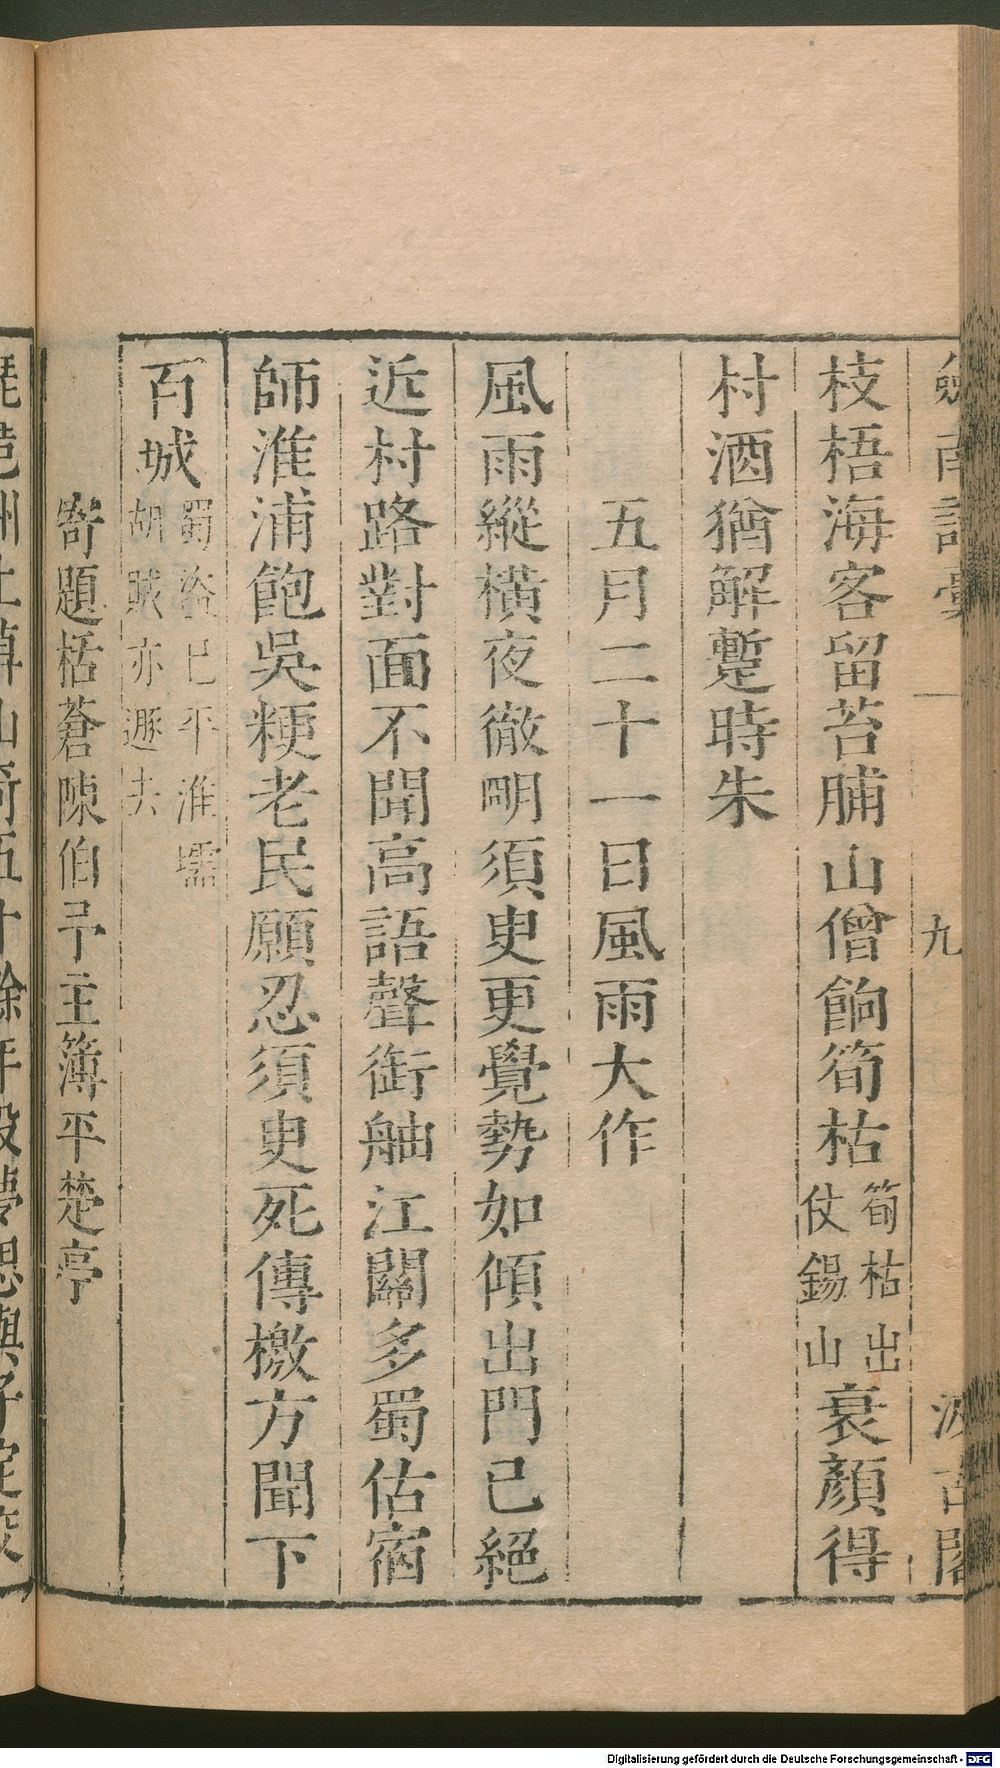 劍南詩藁
九
汲古閣
枝梧海客留苔脯山僧餉筍枯筍枯出仗錫山衰顏得
村酒猶解蹔時朱
五月二十一日風雨大作
風雨縱橫夜徹明須臾更覺勢如傾出門已絕
近村路對面不聞高語聲銜舳江關多蜀估宿
師淮浦飽吳粳老民願忍須臾死傳檄方聞下
百城蜀盜已平淮壖胡賊亦遯去
寄題栝蒼陳伯予主簿平楚亭
琵琶洲上
山奇五十餘年役夢思與子定交
Digitalisierung gefördert durch die Deutsche Forschungsgemeinschaft - DFG